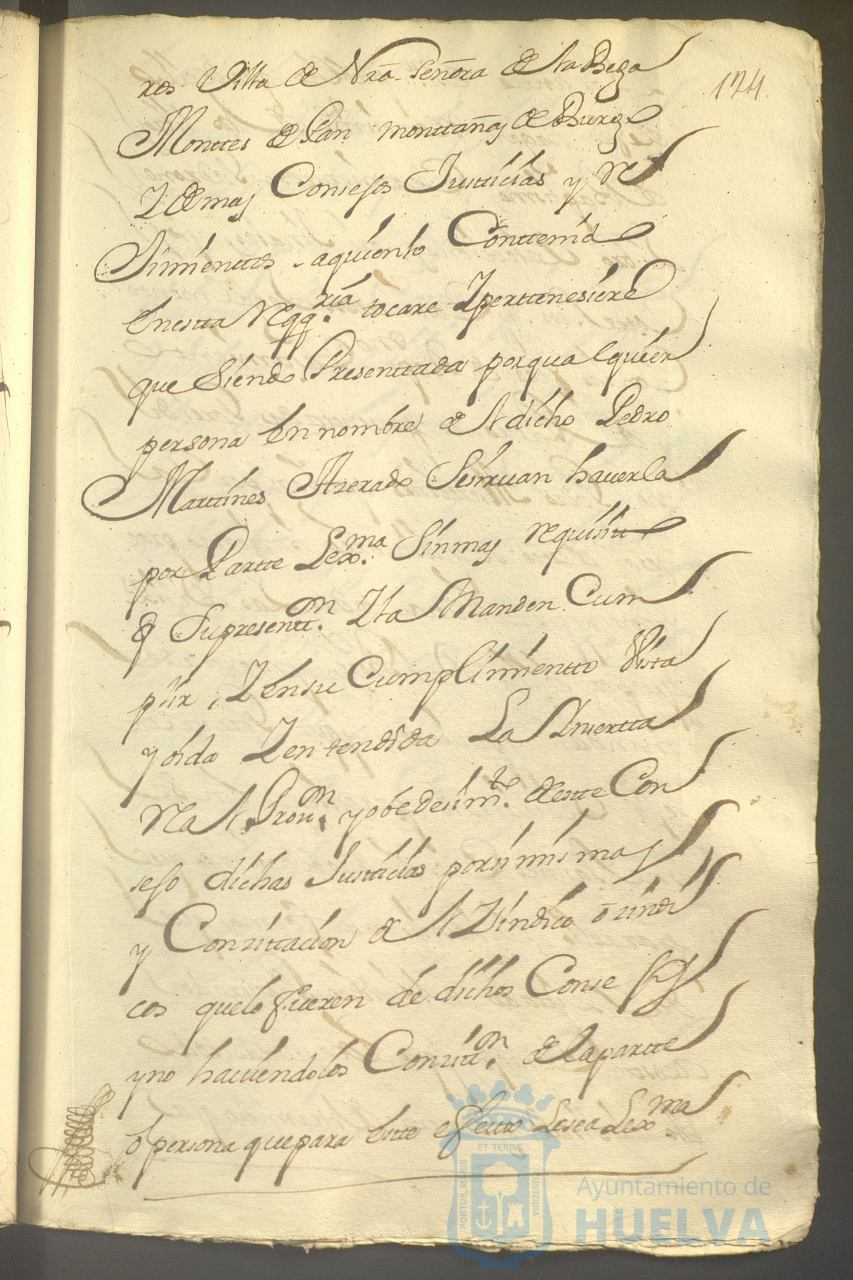 174
ros Villa de Nrã Señora de la Bega
Montes de Pan monttañas de Burgos
Y demas Consejos Justicias y Re
Jimienttos a quien lo Conttenido
En estta Reqq.ria tocare Y perttenesiere
que siendo Presenttada por qualquier
persona En nombre del dicho Pedro
Marttines Azerado Sirvan haverla
por Partte Lex.ma Sin mas requisito
q Supresentt.on Y la Manden Cum
plir, Y en su Cumplimientto Vista
y oida Y entendida La Ynsertta
Real Prov.on y obedesim.to de este Con
sejo dichas Justicias por si mismas
y Consittacion del Sindico o sindi
cos que lo fueren de dichos Consejos
y no haviendolos Consitt.on de la partte
o persona que para Este efectto Le sea Lex.ma
PORTUS MARIS ET TERRAE CUSTODIA
Ayuntamiento de
HUELVA